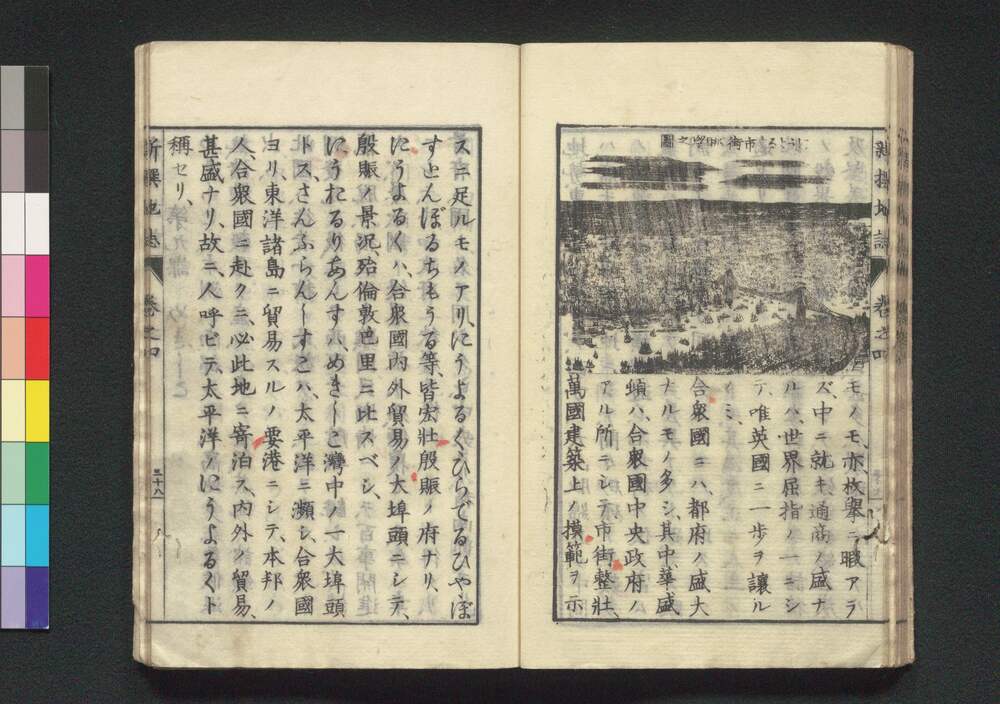 市街眺望之圖
モノモ、亦、枚擧ニ暇アラ
ズ、中ニ就キ、通商ノ盛ナ
ルハ、世界屈指ノ一ニシ
テ、唯英國ニ一歩ヲ讓ル
ノミ、
合衆國ニハ都府ノ盛大
ナルモノ多シ、其中、華盛
頓ハ、合衆國中央政府ノ
アル所ニシテ市街整壯
萬國建築上ノ摸範ヲ示
新撰地誌
卷之四
スニ足ルモノアリ、にうよるくひらでるひや、ぼ
すとんぼるちもうる等、皆宏壯殷賑ノ府ナリ、
にうよるくハ、合衆國内外貿易ノ大埠頭ニシテ、
殷賑ノ景況、殆倫敦巴里ニ比スベシ、
にうおるりあんすハ、めきしーこ灣中ノ一大埠頭
トス、さんふらんしすこハ、太平洋ニ瀕シ、合衆國
ヨリ、東洋諸島ニ貿易スルノ要港ニシテ、本邦ノ
人、合衆國ニ赴クニ、必此地ニ寄泊ス、内外ノ貿易、
甚盛ナリ、故ニ、人呼ビテ、太平洋ノにうよるくト
稱セリ、
新撰地誌
卷之四
三十八